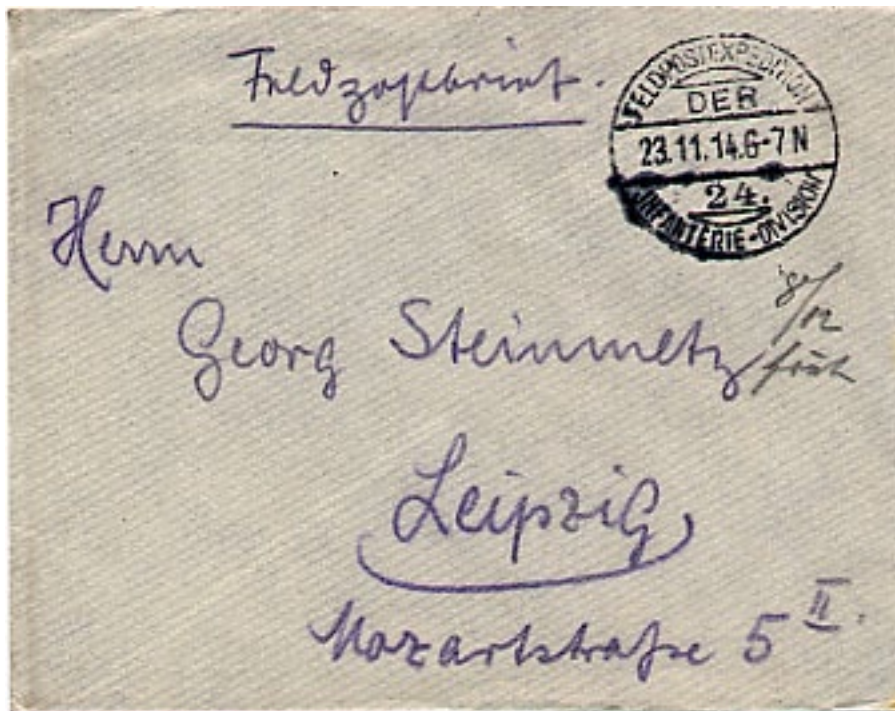 Feldpostbrief.
FELDPOSTEXPEDITION
DER
23.11.14.6-7 N
24.
INFANTERIE-DIVISION
Herrn
Georg Steinmetz
/12
früh
Leipzig
Mozartstraße 5 II.